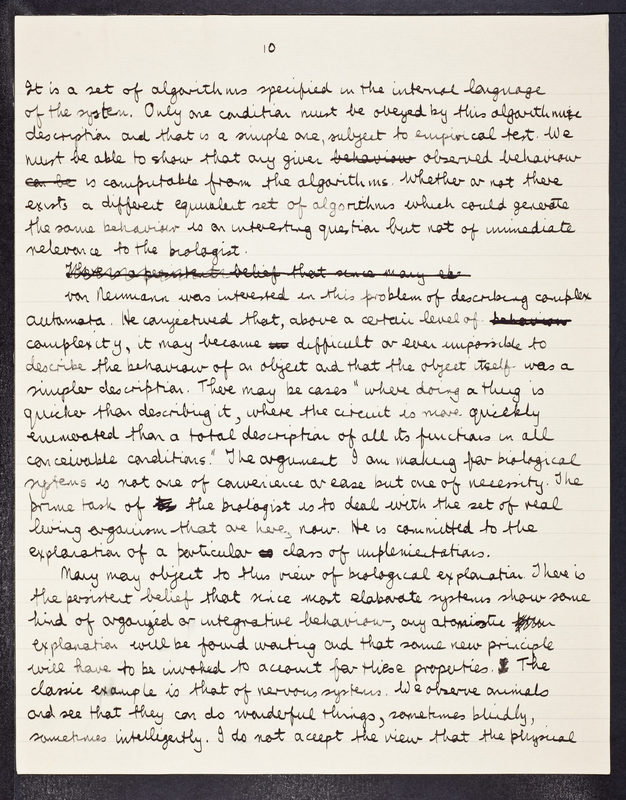 10
It is a set of algorithms specified in the internal language
of the system. Only one condition must be obeyed by this algorithmic
description and that is a simple one, subject to empirical test. We
must be able to show that any given behaviour observed behaviour
can be is computable from the algorithms. Whether or not there
exists a different equivalent set of algorithms which could generate
the same behaviour is an interesting question but not of immediate
relevance to the biologist.
There is a persistent belief that since many
von Neumann was interested in this problem of describing complex
automata. He conjectured that, above a certain level of behaviour
complexity, it may become difficult or even impossible to
describe the behaviour of an object and that the object itself was a
simpler description. There may be cases "where doing a thing is
quicker than describing it, where the circuit is more quickly
enumerated than a total description of all its functions in all
conceivable conditions." The argument I am making for biological
systems is not one of convenience or ease but one of necessity. The
prime task of the biologist is to deal with the set of real
living organism that are here, now. He is committed to the
explanation of a particular class of implementations.
Many may object to this view of biological explanation. There is
the persistent belief that since most elaborate systems show some
kind of organized or integrative behaviour, any atomistic
explanation will be found wanting and that some new principle
will have to be invoked to account for these properties. The
classic example is that of nervous systems. We observe animals
and see that they can do wonderful things, sometimes blindly,
sometimes intelligently. I do not accept the view that the physical